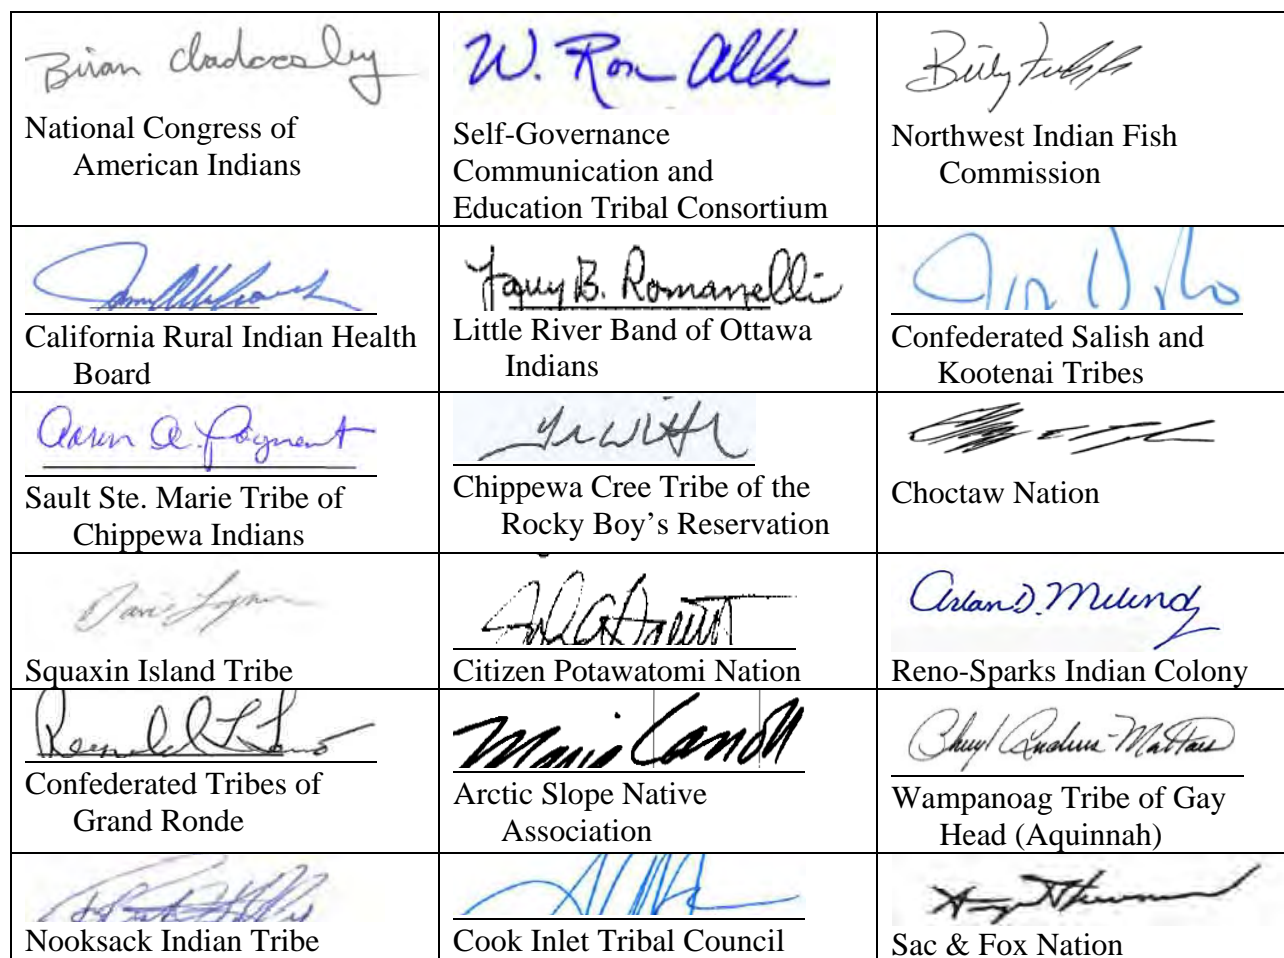 Brian Cladoosby
W. Ron Allen
National Congress of
American Indians
Self-Governance
Communication and
Education Tribal Consortium
Northwest Indian Fish
Commission
California Rural Indian Health
Board
B. Romanelli
Little River Band of Ottawa
Indians
Confederated Salish and
Kootenai Tribes
Aaron A. Payment
Sault Ste. Marie Tribe of
Chippewa Indians
Chippewa Cree Tribe of the
Rocky Boy's Reservation
Choctaw Nation
Squaxin Island Tribe
Citizen Potawatomi Nation
Arlan D. Melendez
Reno-Sparks Indian Colony
Confederated Tribes of
Grand Ronde
Marie Carroll
Arctic Slope Native
Association
Cheryl Andrews-Maltais
Wampanoag Tribe of Gay
Head (Aquinnah)
Nooksack Indian Tribe
Cook Inlet Tribal Council
Sac & Fox Nation